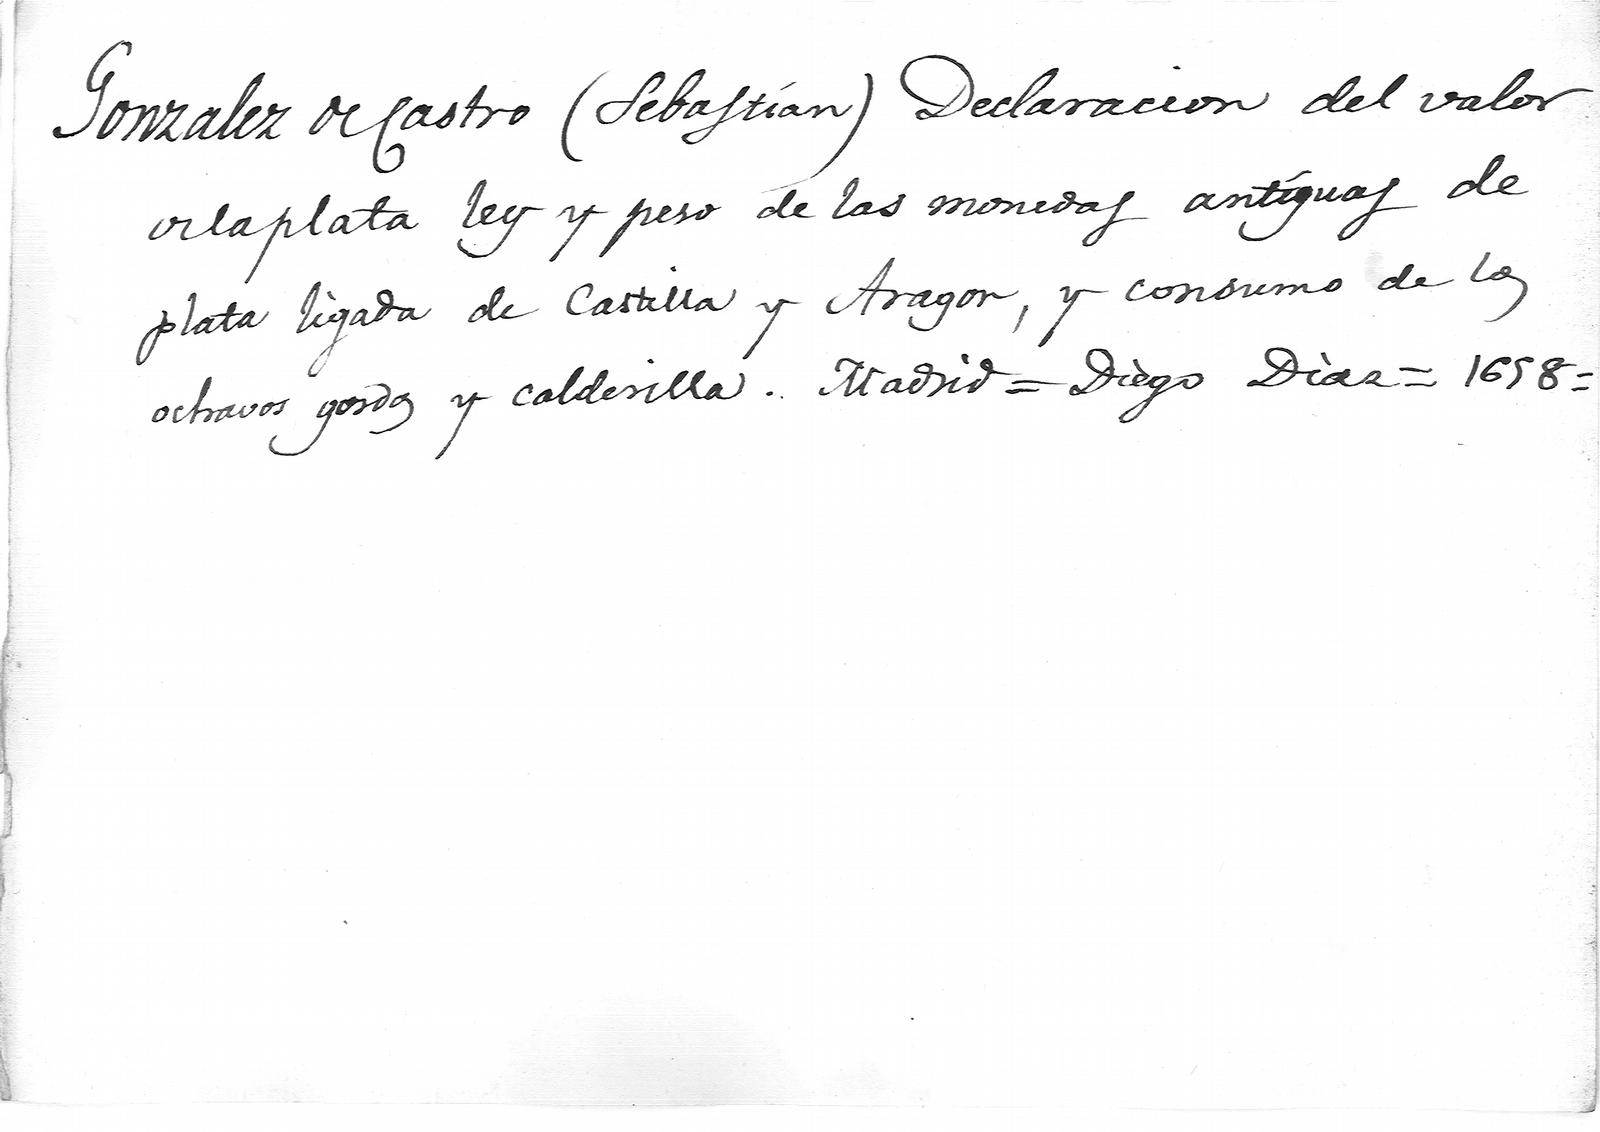 Gonzalez de Castro (Sebastian) Declaracion del valor
de la plata ley y peso de las monedas antiguas de
plata ligada de Castilla y Aragon, y consumo de los
ochavos gordos y calderilla. Madrid = Diego Diaz = 1658 =